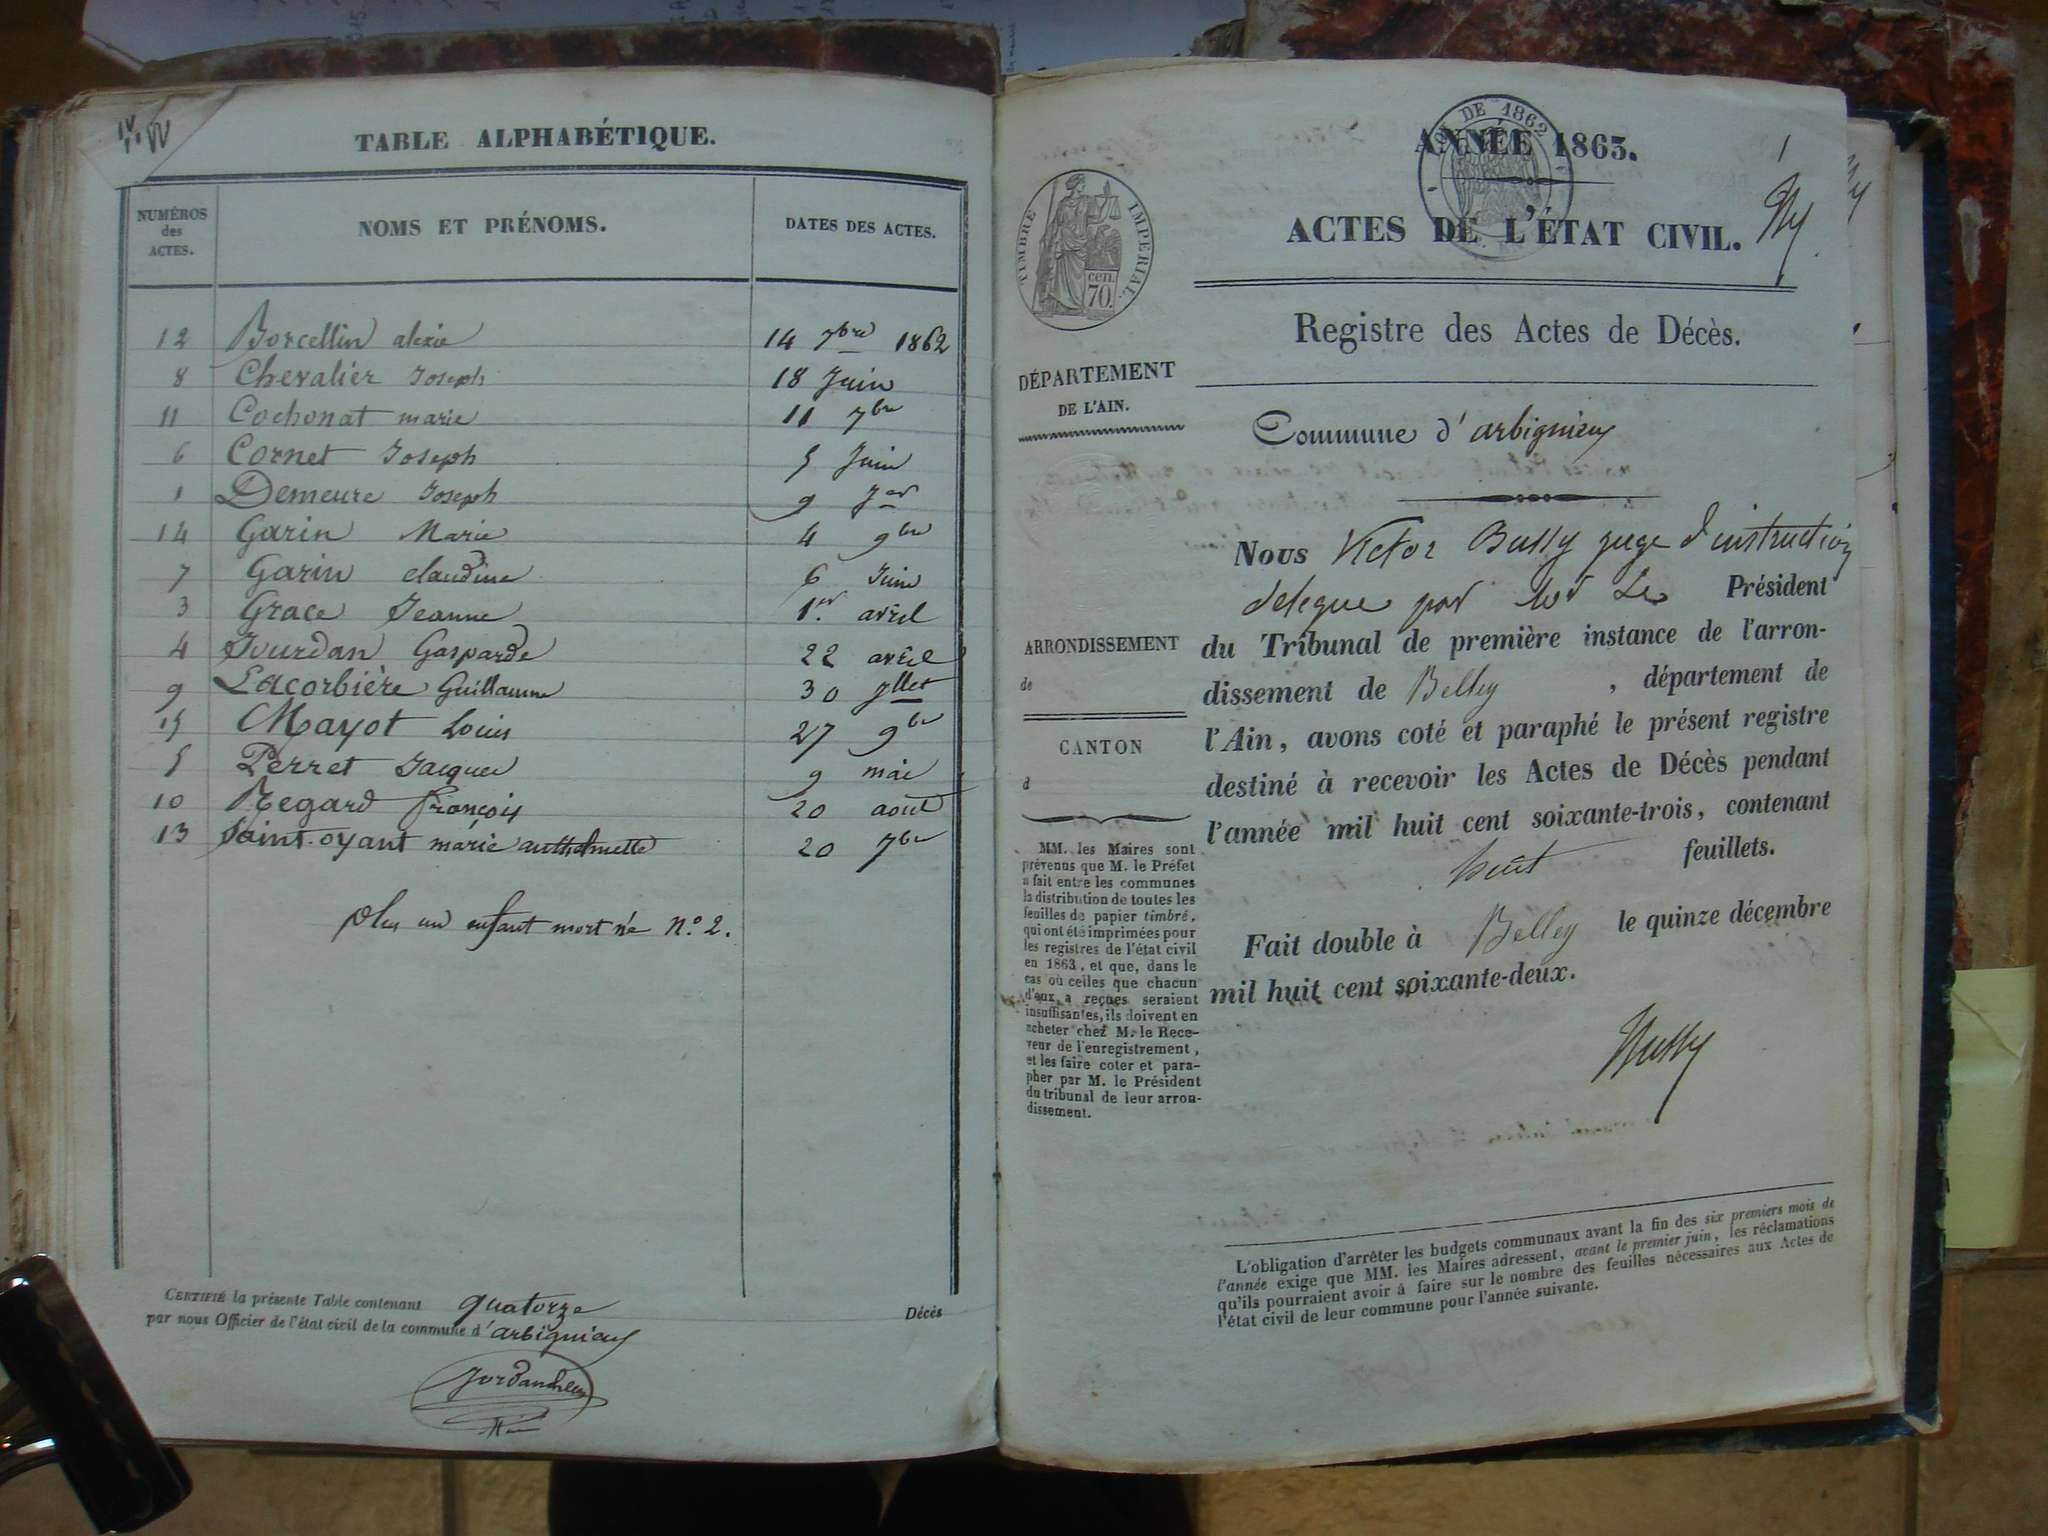 TABLE ALPHABÉTIQUE.
NUMÉROS des ACTES. NOMS ET PRÉNOMS. DATES DES ACTES.
12 Borcellin alexie 14 7bre 1862
8 Chevalier Joseph 18 Juin
11 Cochonat marie 11 7bre
6 Cornet Joseph 5 Juin
1 Demeure Joseph 9 Jer
14 Garin Marie 4 9bre
7 Garin claudine 6 Juin
3 Grace Jeanne 1er avril
4 Jourdan Gasparde 22 avril
9 Lacorbière Guillaume 30 Jllet
15 Mayot Louis 27 9bre
5 Perret Jacques 9 mai
10 Regard françois 20 août
13 Saint-oyant marie anthelmette 20 7bre
plus un enfant mort né N.o 2.
CERTIFIÉ la présente Table contenant quatorze Décès
par nous Officier de l'état civil de la commune d'arbignieu
ON DE 1862
ANNÉE 1863.
1
ACTES DE L'ÉTAT CIVIL.
Registre des Actes de Décès.
TIMBRE IMPÉRIAL.
cen.
70.
DÉPARTEMENT
DE L'AIN.
ARRONDISSEMENT
de
CANTON
d
MM. les Maires sont
prévenus que M. le Préfet
a fait entre les communes
la distribution de toutes les
feuilles de papier timbré,
qui ont été imprimées pour
les registres de l'état civil
en 1863, et que, dans le
cas où celles que chacun
d'eux a reçues seraient
insuffisantes, ils doivent en
acheter chez M. le Rece-
veur de l'enregistrement,
et les faire coter et para-
pher par M. le Président
du tribunal de leur arron-
dissement.
Commune d'arbignieu
Nous Victor Bussy juge d'instruction
délégué par Mr Le Président
du Tribunal de première instance de l'arron-
dissement de Belley, département de
l'Ain, avons coté et paraphé le présent registre
destiné à recevoir les Actes de Décès pendant
l'année mil huit cent soixante-trois, contenant
huit feuillets.
Fait double à Belley le quinze décembre
mil huit cent soixante-deux.
Bussy
L'obligation d'arrêter les budgets communaux avant la fin des six premiers mois de
l'année exige que MM. les Maires adressent, avant le premier juin, les réclamations
qu'ils pourraient avoir à faire sur le nombre des feuilles nécessaires aux Actes de
l'état civil de leur commune pour l'année suivante.